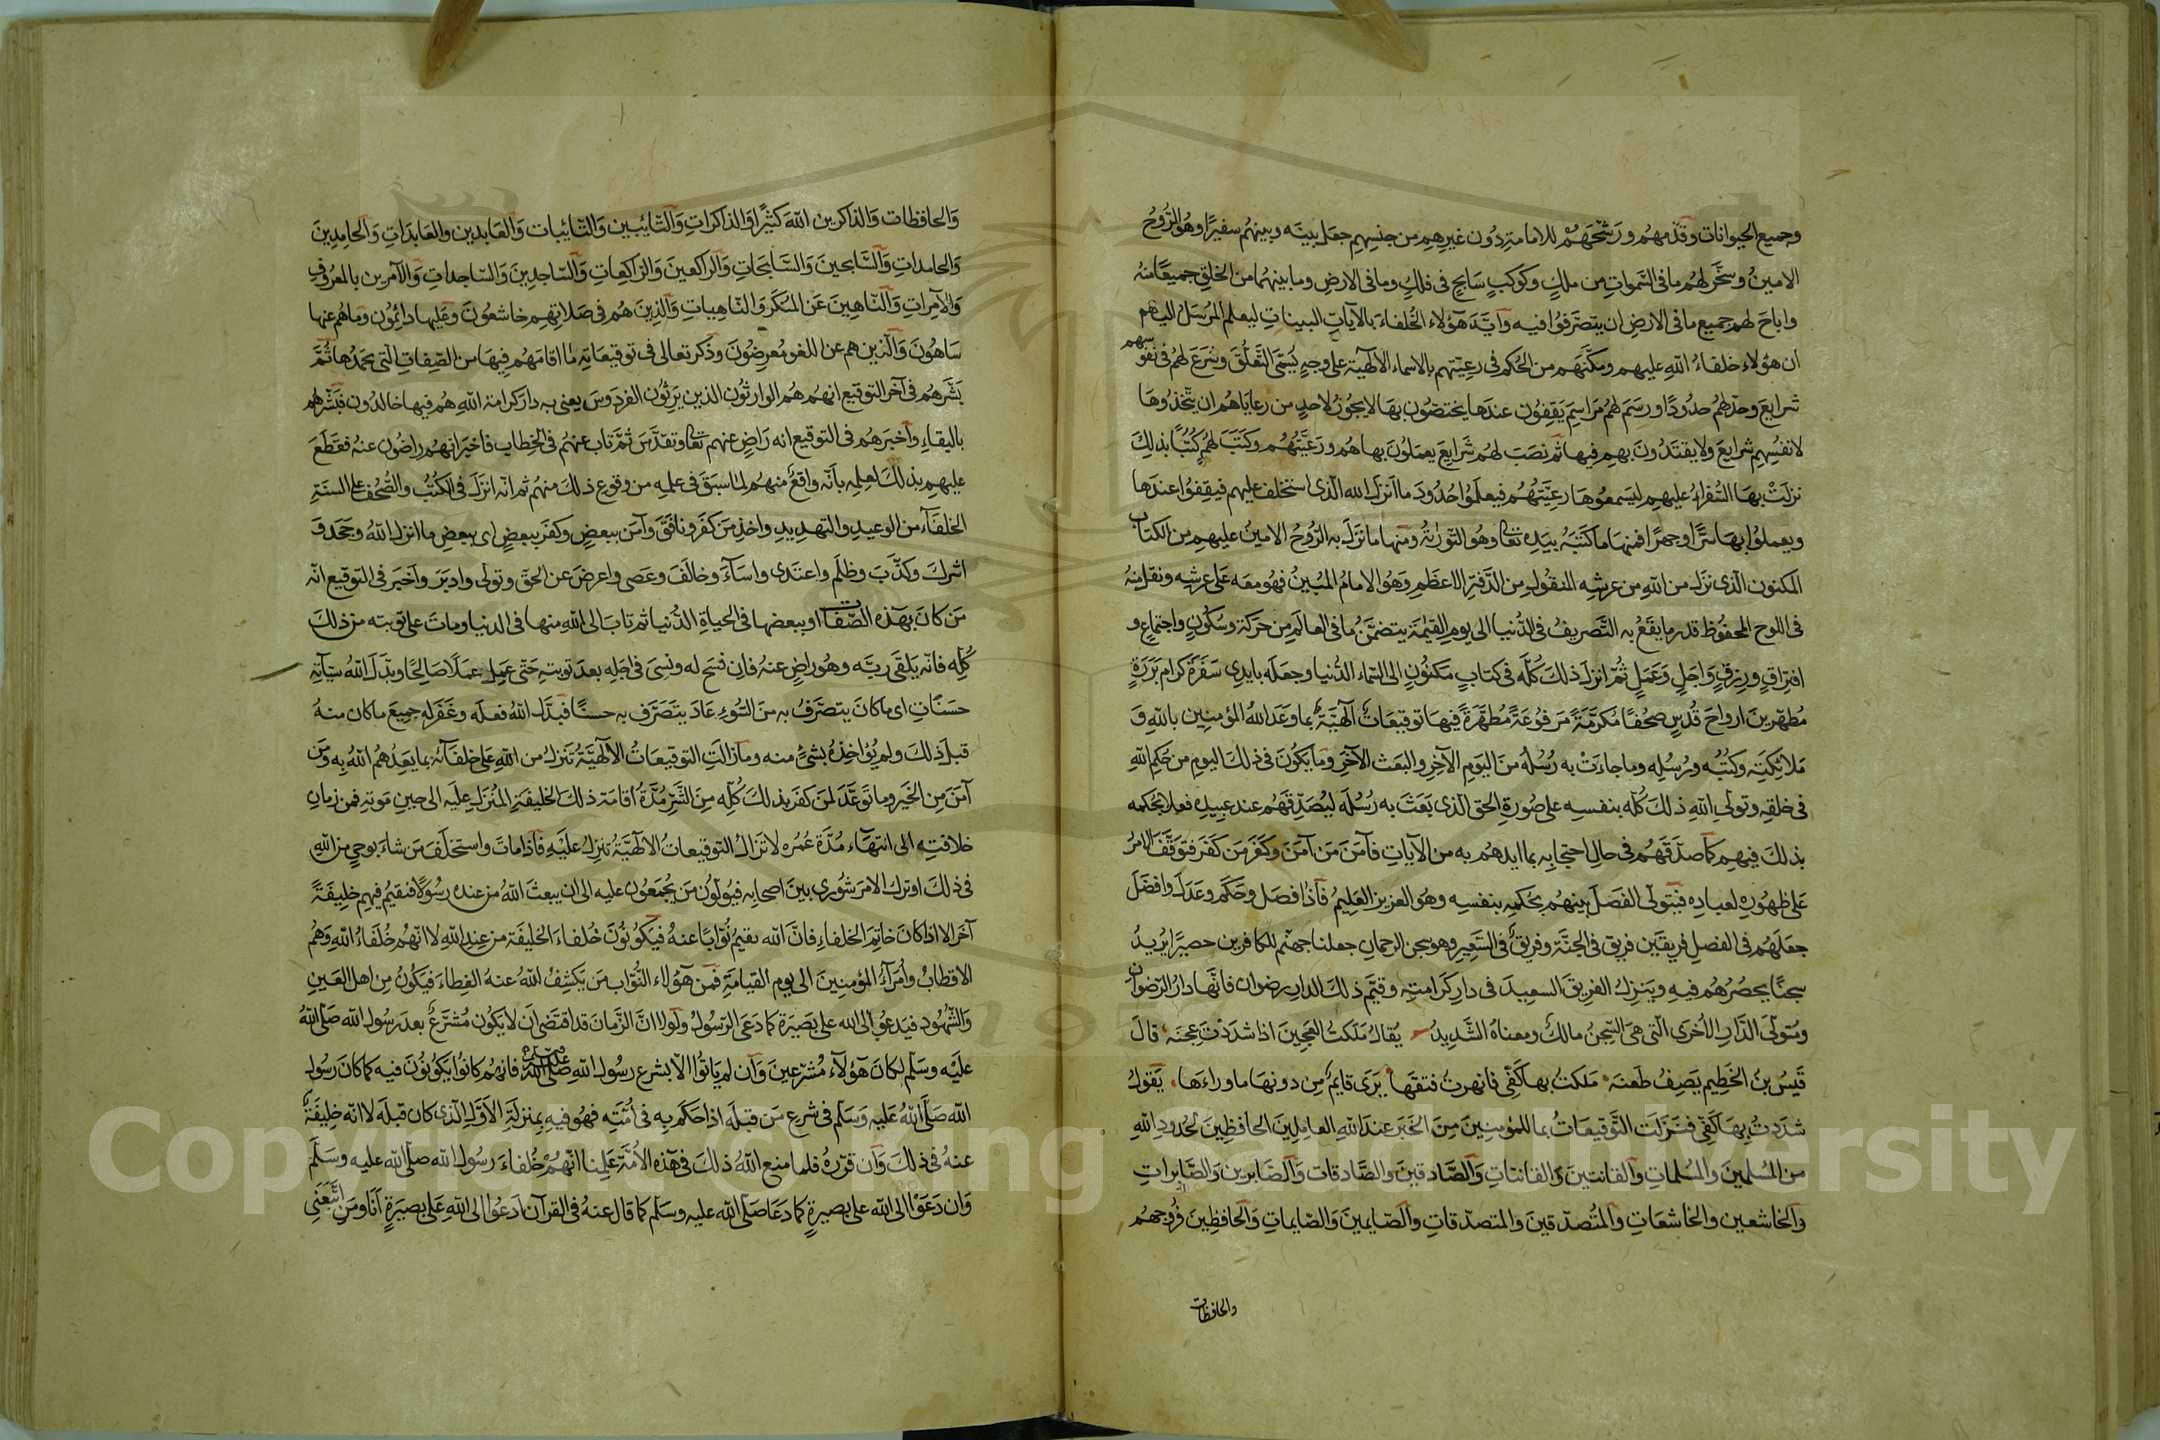 وجميع الحيوانات وقدمهم ورشحهم للامامة دون غيرهم من جنسهم جعل بينه وبينهم سفيرًا وهو الروح
الامين وسخر لهم ما في السموات من ملك وكوكب سابح في فلك وما في الارض وما بينهما من الخلق جميعًا منه
واباح لهم جميع ما في الارض ان يتصرفوا فيه وايد هؤلاء الخلفاء بالآيات البينات ليعلم المرسل اليهم
ان هؤلاء خلفاء الله عليهم ومكنهم من الحكم في رعيتهم بالاسماء الالهية على وجه يسمى التعلق وشرع لهم في نفوسهم
شرايع وحد لهم حدودًا ورسم لهم مراسم يقفون عندها يختصون بها لا يجوز لاحد من رعاياهم ان يتخذوها
لانفسهم شرايع ولا يقتدون بهم فيها ثم نصب لهم شرايع يعملون بها هم ورعيتهم وكتب لهم كتبًا بذلك
نزلت بها السفراء عليهم ليسمعوها رعيتهم فيعلموا حدود ما انزل الله الذي استخلف عليهم فيقفوا عندها
ويعملوا بها سرًا وجهرًا فمنها ما كتبه بيده تعالى وهو التوراة ومنها ما نزل به الروح الامين عليهم من الكتاب
المكنون الذي نزل من الله من عرشه المنقول من الدفتر الاعظم وهو الامام المبين فهو معه على عرشه ونقل منه
في اللوح المحفوظ قدر ما يقع به التصريف في الدنيا الى يوم القيمة يتضمن ما في العالم من حركة وسكون واجتماع و
افتراق ورزق واجل وعمل ثم انزل ذلك كله في كتاب مكنون الى السماء الدنيا وجعله بايدي سفرة كرام بررة
مطهرين ارواح قدس صحفًا مكرمة مرفوعة مطهرة فيها توقيعات الهية بما وعد الله المؤمنين بالله و
ملائكته وكتبه ورسله وما جاءت به رسله من اليوم الآخر والبعث الآخر وما يكون في ذلك اليوم من حكم الله
في خلقه وتولى الله ذلك كله بنفسه على صورة الحق الذي بعث به رسله ليصدقهم عند عبيده فعلا بحكمه
بذلك فيهم كما صدقهم في حال احتجابه بما ايدهم به من الآيات فآمن من آمن وكفر من كفر فتوقف الامر
على ظهوره لعباده فيتولى الفصل بينهم بحكمه بنفسه وهو العزيز العليم فاذا فصل وحكم وعدل وافضل
جعلهم في الفصل فريقين فريق في الجنة وفريق في السعير وهو سجن الرحمان جعلنا جهنم للكافرين حصيرًا يريد
سجنًا يحصرهم فيه وينزل الفريق السعيد في دار كرامته وقيم ذلك الدار رضوان فانها دار الرضوان
ومتولى الدار الاخرى التي هي السجن مالك ومعناه الشديد يقال ملكت العجين اذا شددت عجنه قال
قيس بن الخطيم يصف طعنة ملكت بها كفي فانهرت فتقها يرى قايم من دونها ما وراءها يقول
شددت بها كفي فنزلت التوقيعات بما للمؤمنين من الخير عند الله العاملين الحافظين لحدود الله
من المسلمين والمسلمات والقانتين والقانتات والصادقين والصادقات والصابرين والصابرات
والخاشعين والخاشعات والمتصدقين والمتصدقات والصايمين والصايمات والحافظين فروجهم
والحافظات
والحافظات والذاكرين الله كثيرًا والذاكرات والتائبين والتائبات والعابدين والعابدات والحامدين
والحامدات والسابحين والسابحات والراكعين والراكعات والساجدين والساجدات والآمرين بالمعروف
والآمرات والناهين عن المنكر والناهيات والذين هم في صلاتهم خاشعون وعليها دائمون وما هم عنها
ساهون والذين هم عن اللغو معرضون وذكر تعالى في توقيعاته ما اقامهم فيها من الصفات التي يحمدها ثم
بشرهم في آخر التوقيع انهم هم الوارثون الذين يرثون الفردوس يعني به دار كرامة الله هم فيها خالدون فبشرهم
بالبقاء واخبرهم في التوقيع انه راض عنهم تعالى وتقدس ثم تاب عنهم في الخطاب فاخبر انهم راضون عنه فقطع
عليهم بذلك لعلمه بانه واقع منهم لما سبق في علمه من وقوع ذلك منهم ثم انه انزل في الكتب والصحف على السنة
الخلفاء من الوعيد والتهديد واخذ من كفر ونافق وآمن ببعض وكفر ببعض اي ببعض ما انزل الله وجحد و
اشرك وكذب وظلم واعتدى واساء وخالف وعصى واعرض عن الحق وتولى وادبر واخبر في التوقيع انه
من كان بهذه الصفات او ببعضها في الحياة الدنيا ثم تاب الى الله منها في الدنيا ومات على توبته من ذلك
كله فانه يلقى ربه وهو راض عنه فان فسح له ونسى في اجله بعد توبته حتى عمل عملًا صالحًا وبدل الله سيآته
حسنات اي ما كان يتصرف به من السوء عاد يتصرف به حسنًا فبدل الله فعله وغفر له جميع ما كان منه
قبل ذلك ولم يؤاخذه بشئ منه ومازالت التوقيعات الالهية تنزل من الله على خلفائه بما يعدهم الله به ومن
آمن من الخير وما توعد لمن كفر بذلك كله من الشر مدة اقامة ذلك الخليفة المنزل عليه الى حين موته فمن زمان
خلافته الى انتهاء مدة عمره لا تزال التوقيعات الالهية تنزل عليه فاذا مات واستخلف من شاء بوحي من الله
في ذلك او ترك الامر شورى بين اصحابه فيولون من يجمعون عليه الى ان يبعث الله من عنده رسولًا فيقيم فيهم خليفة
آخر الا اذا كان خاتم الخلفاء فان الله يقيم نوابًا عنه فيكونون خلفاء الخليفة من عند الله لا انهم خلفاء الله وهم
الاقطاب وامراء المؤمنين الى يوم القيامة فمن هؤلاء النواب من يكشف الله عنه الغطاء فيكون من اهل العين
والشهود فيدعو الى الله على بصيرة كما دعى الرسول ولولا ان الزمان قد اقتضى ان لا يكون مشرع بعد رسول الله صلى الله
عليه وسلم لكان هؤلاء مشرعين وان لم يأتوا الا بشرع رسول الله صلى الله عليه وسلم فانهم كانوا يكونون فيه كما كان رسول
الله صلى الله عليه وسلم في شرع من قبله اذا حكم به في امته فهو فيه بمنزلة الاول الذي كان قبله لا انه خليفة
عنه في ذلك وان قرره فلما منع الله ذلك في هذه الامة علمنا انهم خلفاء رسول الله صلى الله عليه وسلم
وان دعوا الى الله على بصيرة كما دعا صلى الله عليه وسلم كما قال عنه في القرآن ادعوا الى الله على بصيرة انا ومن اتبعني
Copyright © King Saud University